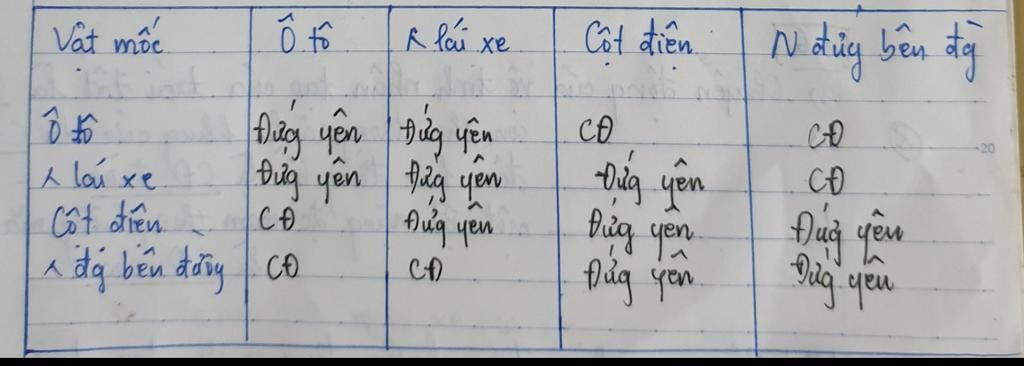 Vật mốc Ô tô λ lái xe Cột điện N đứng bên đg̀
Ô tô Đứg yên Đứg yên CĐ CĐ
λ lái xe Đứg yên Đứg yên Đứg yên CĐ
Cột điện CĐ Đứg yên Đứg yên Đứg yên
λ đg bên đường CĐ CĐ Đứg yên Đứg yên
20